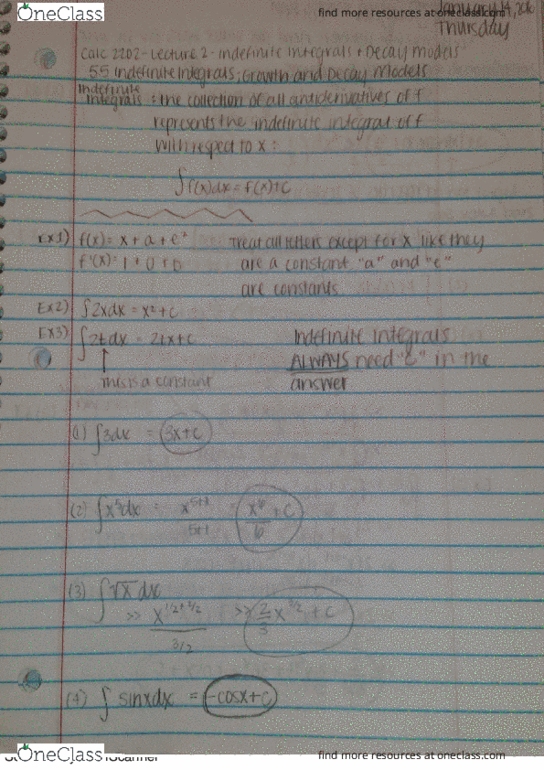 OneClass
find more resources at oneclass.com
January 14, 2016
Thursday
Calc 2202 - Lecture 2 - indefinite integrals + Decay models
5.5 indefinite integrals; Growth and Decay Models
Indefinite
integrals : the collection of all antiderivatives of f
represents the indefinite integral of f
with respect to x :
∫f(x)dx = f(x)+c
Ex1) f(x) = x + a + e²
f'(x) = 1 + 0 + 0
treat all letters except for x like they
are a constant "a" and "e"
are constants.
Ex2) ∫2xdx = x² + c
Ex3) ∫2tdx = 2tx + c
this is a constant
Indefinite integrals
ALWAYS need "c" in the
answer
(1) ∫3dx = 3x+c
(2) ∫x⁵dx = x⁵⁺¹/5+1 = x⁶/6 + c
(3) ∫√x dx
>> x^1/2+2/2 / 3/2 >> 2/3 x^3/2 + c
(4) ∫ sinxdx = -cosx+c
OneClass
Scanner
find more resources at oneclass.com